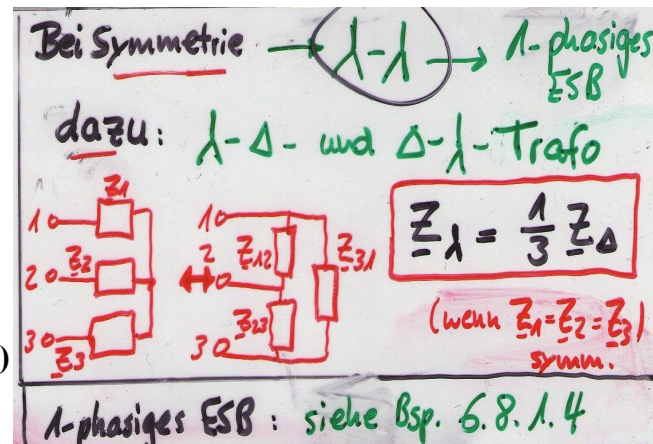 Bei Symmetrie → ⅄-⅄ → 1-phasiges
ESB
dazu: ⅄-Δ- und Δ-⅄-Trafo
Z1
1
Z2
2
Z3
3
1
Z12
2
Z31
Z23
3
Z⅄ = 1/3 ZΔ
(wenn Z1=Z2=Z3)
symm.
)
1-phasiges ESB: siehe Bsp. 6.8.1.4